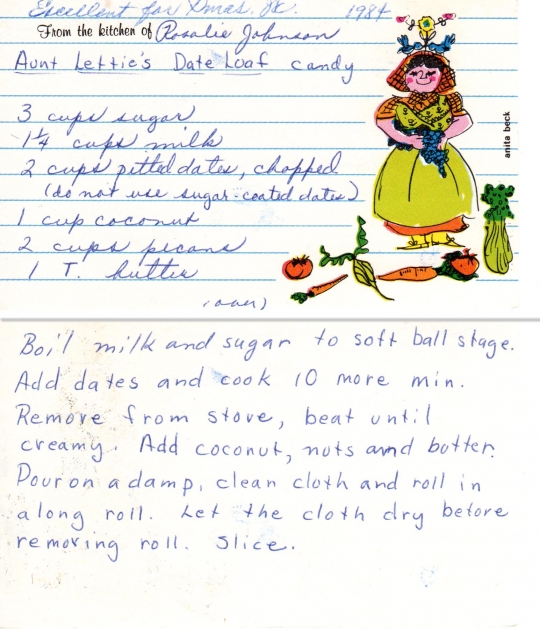 Excellent for Xmas. JK. 1984
From the kitchen of Rosalie Johnson
Aunt Lettie's Date Loaf candy
3 cups sugar
1 1/4 cups milk
2 cups pitted dates, chopped
(do not use sugar-coated dates)
1 cup coconut
2 cups pecans
1 T. butter
(over)
anita beck
Boil milk and sugar to soft ball stage.
Add dates and cook 10 more min.
Remove from stove, beat until
creamy. Add coconut, nuts and butter.
Pour on a damp, clean cloth and roll in
a long roll. Let the cloth dry before
removing roll. Slice.